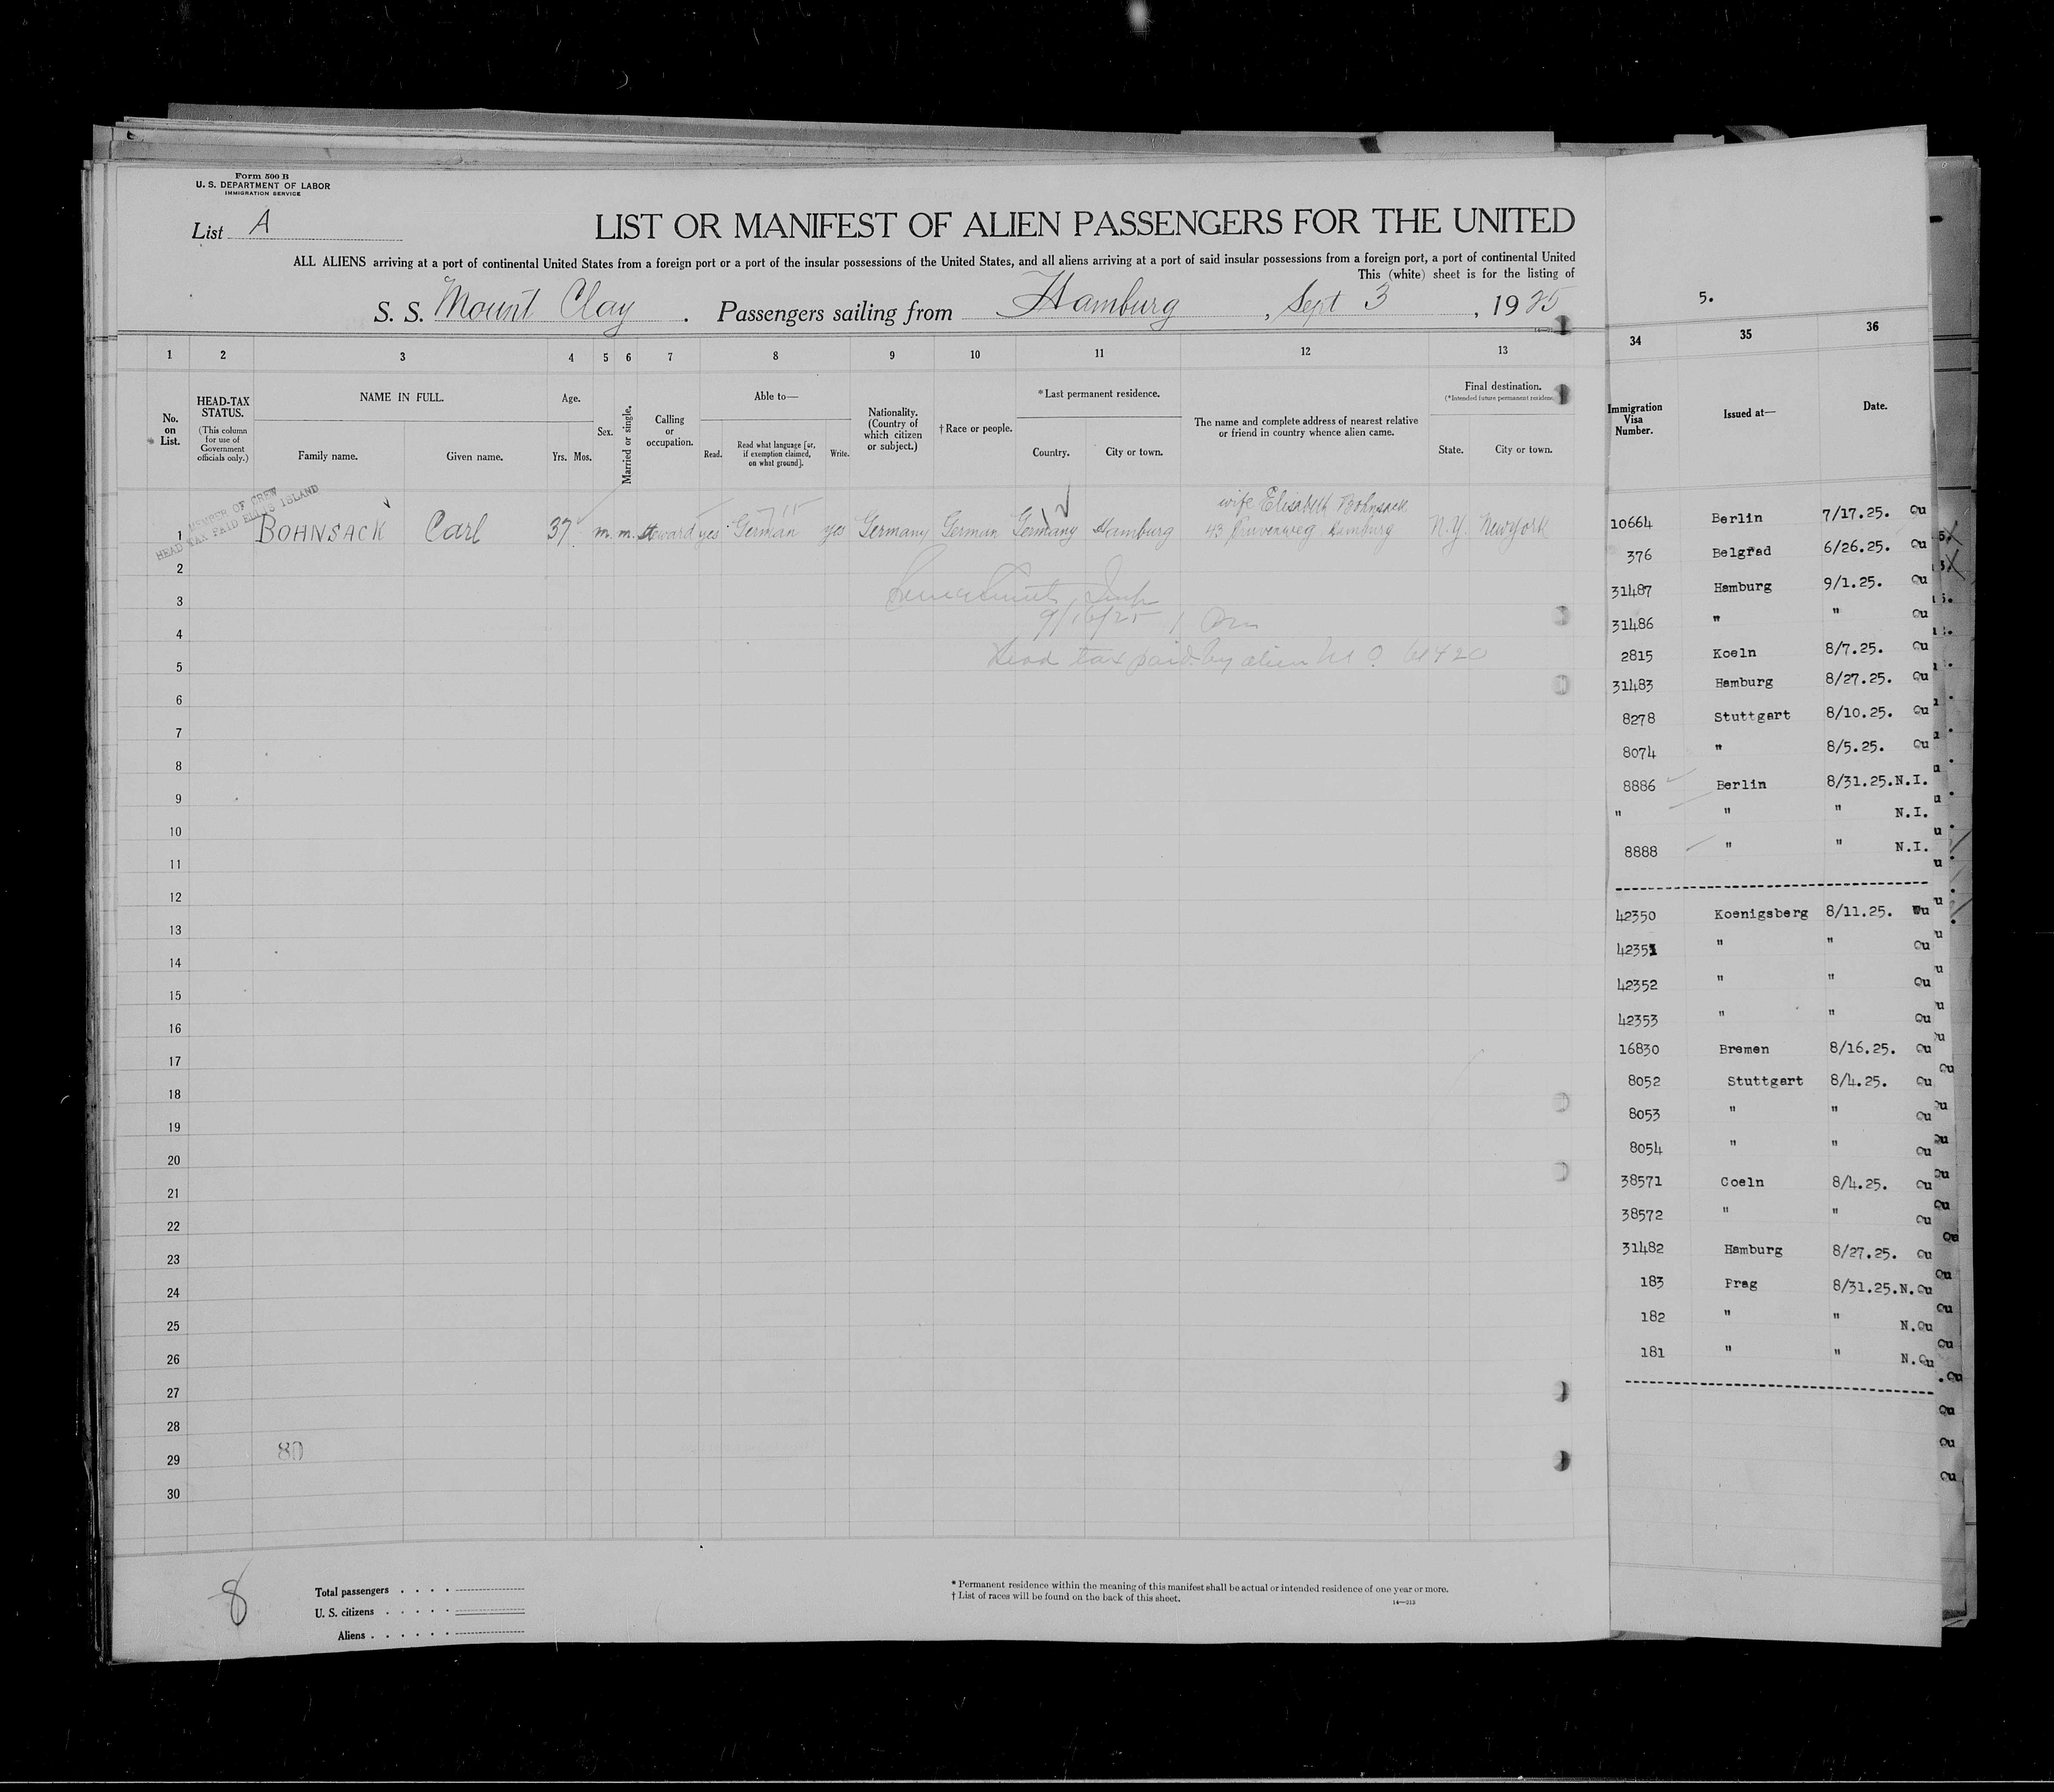 Form 500 B
U. S. DEPARTMENT OF LABOR
IMMIGRATION SERVICE
List A
LIST OR MANIFEST OF ALIEN PASSENGERS FOR THE UNITED
ALL ALIENS arriving at a port of continental United States from a foreign port or a port of the insular possessions of the United States, and all aliens arriving at a port of said insular possessions from a foreign port, a port of continental United
This (white) sheet is for the listing of
S. S. Mount Clay . Passengers sailing from Hamburg , Sept 3 , 1925
5.
1 2 3 4 5 6 7 8 9 10 11 12 13
34 35 36
No. on List.
HEAD-TAX STATUS.
(This column for use of Government officials only.)
NAME IN FULL.
Family name. Given name.
Age.
Yrs. Mos.
Sex.
Married or single.
Calling or occupation.
Able to—
Read. Read what language [or, if exemption claimed, on what ground]. Write.
Nationality. (Country of which citizen or subject.)
†Race or people.
*Last permanent residence.
Country. City or town.
The name and complete address of nearest relative or friend in country whence alien came.
Final destination.
(*Intended future permanent residence
State. City or town.
Immigration Visa Number.
Issued at—
Date.
MEMBER OF CREW
HEAD TAX PAID ELLIS ISLAND
wife Elisabeth Bohnsack
1 BOHNSACK Carl 37 m. m. steward yes German yes Germany German Germany Hamburg 43 Hamburg N.Y. New York
2
3
9/16/25
4
5
Head tax paid by alien
6
7
8
9
10
11
12
13
14
15
16
17
18
19
20
21
22
23
24
25
26
27
28
29
30
80
8
Total passengers
U. S. citizens
Aliens
* Permanent residence within the meaning of this manifest shall be actual or intended residence of one year or more.
† List of races will be found on the back of this sheet.
14—213
10664 Berlin 7/17.25. Qu
376 Belgrad 6/26.25. Qu
31487 Hamburg 9/1.25. Qu
31486 " " Qu
2815 Koeln 8/7.25. Qu
31483 Hamburg 8/27.25. Qu
8278 Stuttgart 8/10.25. Qu
8074 " 8/5.25. Qu
8886 Berlin 8/31.25.N.I.
" " " N.I.
8888 " " N.I.
42350 Koenigsberg 8/11.25. Qu
42351 " " Qu
42352 " " Qu
42353 " " Qu
16830 Bremen 8/16.25. Qu
8052 Stuttgart 8/4.25. Qu
8053 " " Qu
8054 " " Qu
38571 Coeln 8/4.25. Qu
38572 " " Qu
31482 Hamburg 8/27.25. Qu
183 Prag 8/31.25.N.Qu
182 " " N.Qu
181 " " N.Qu